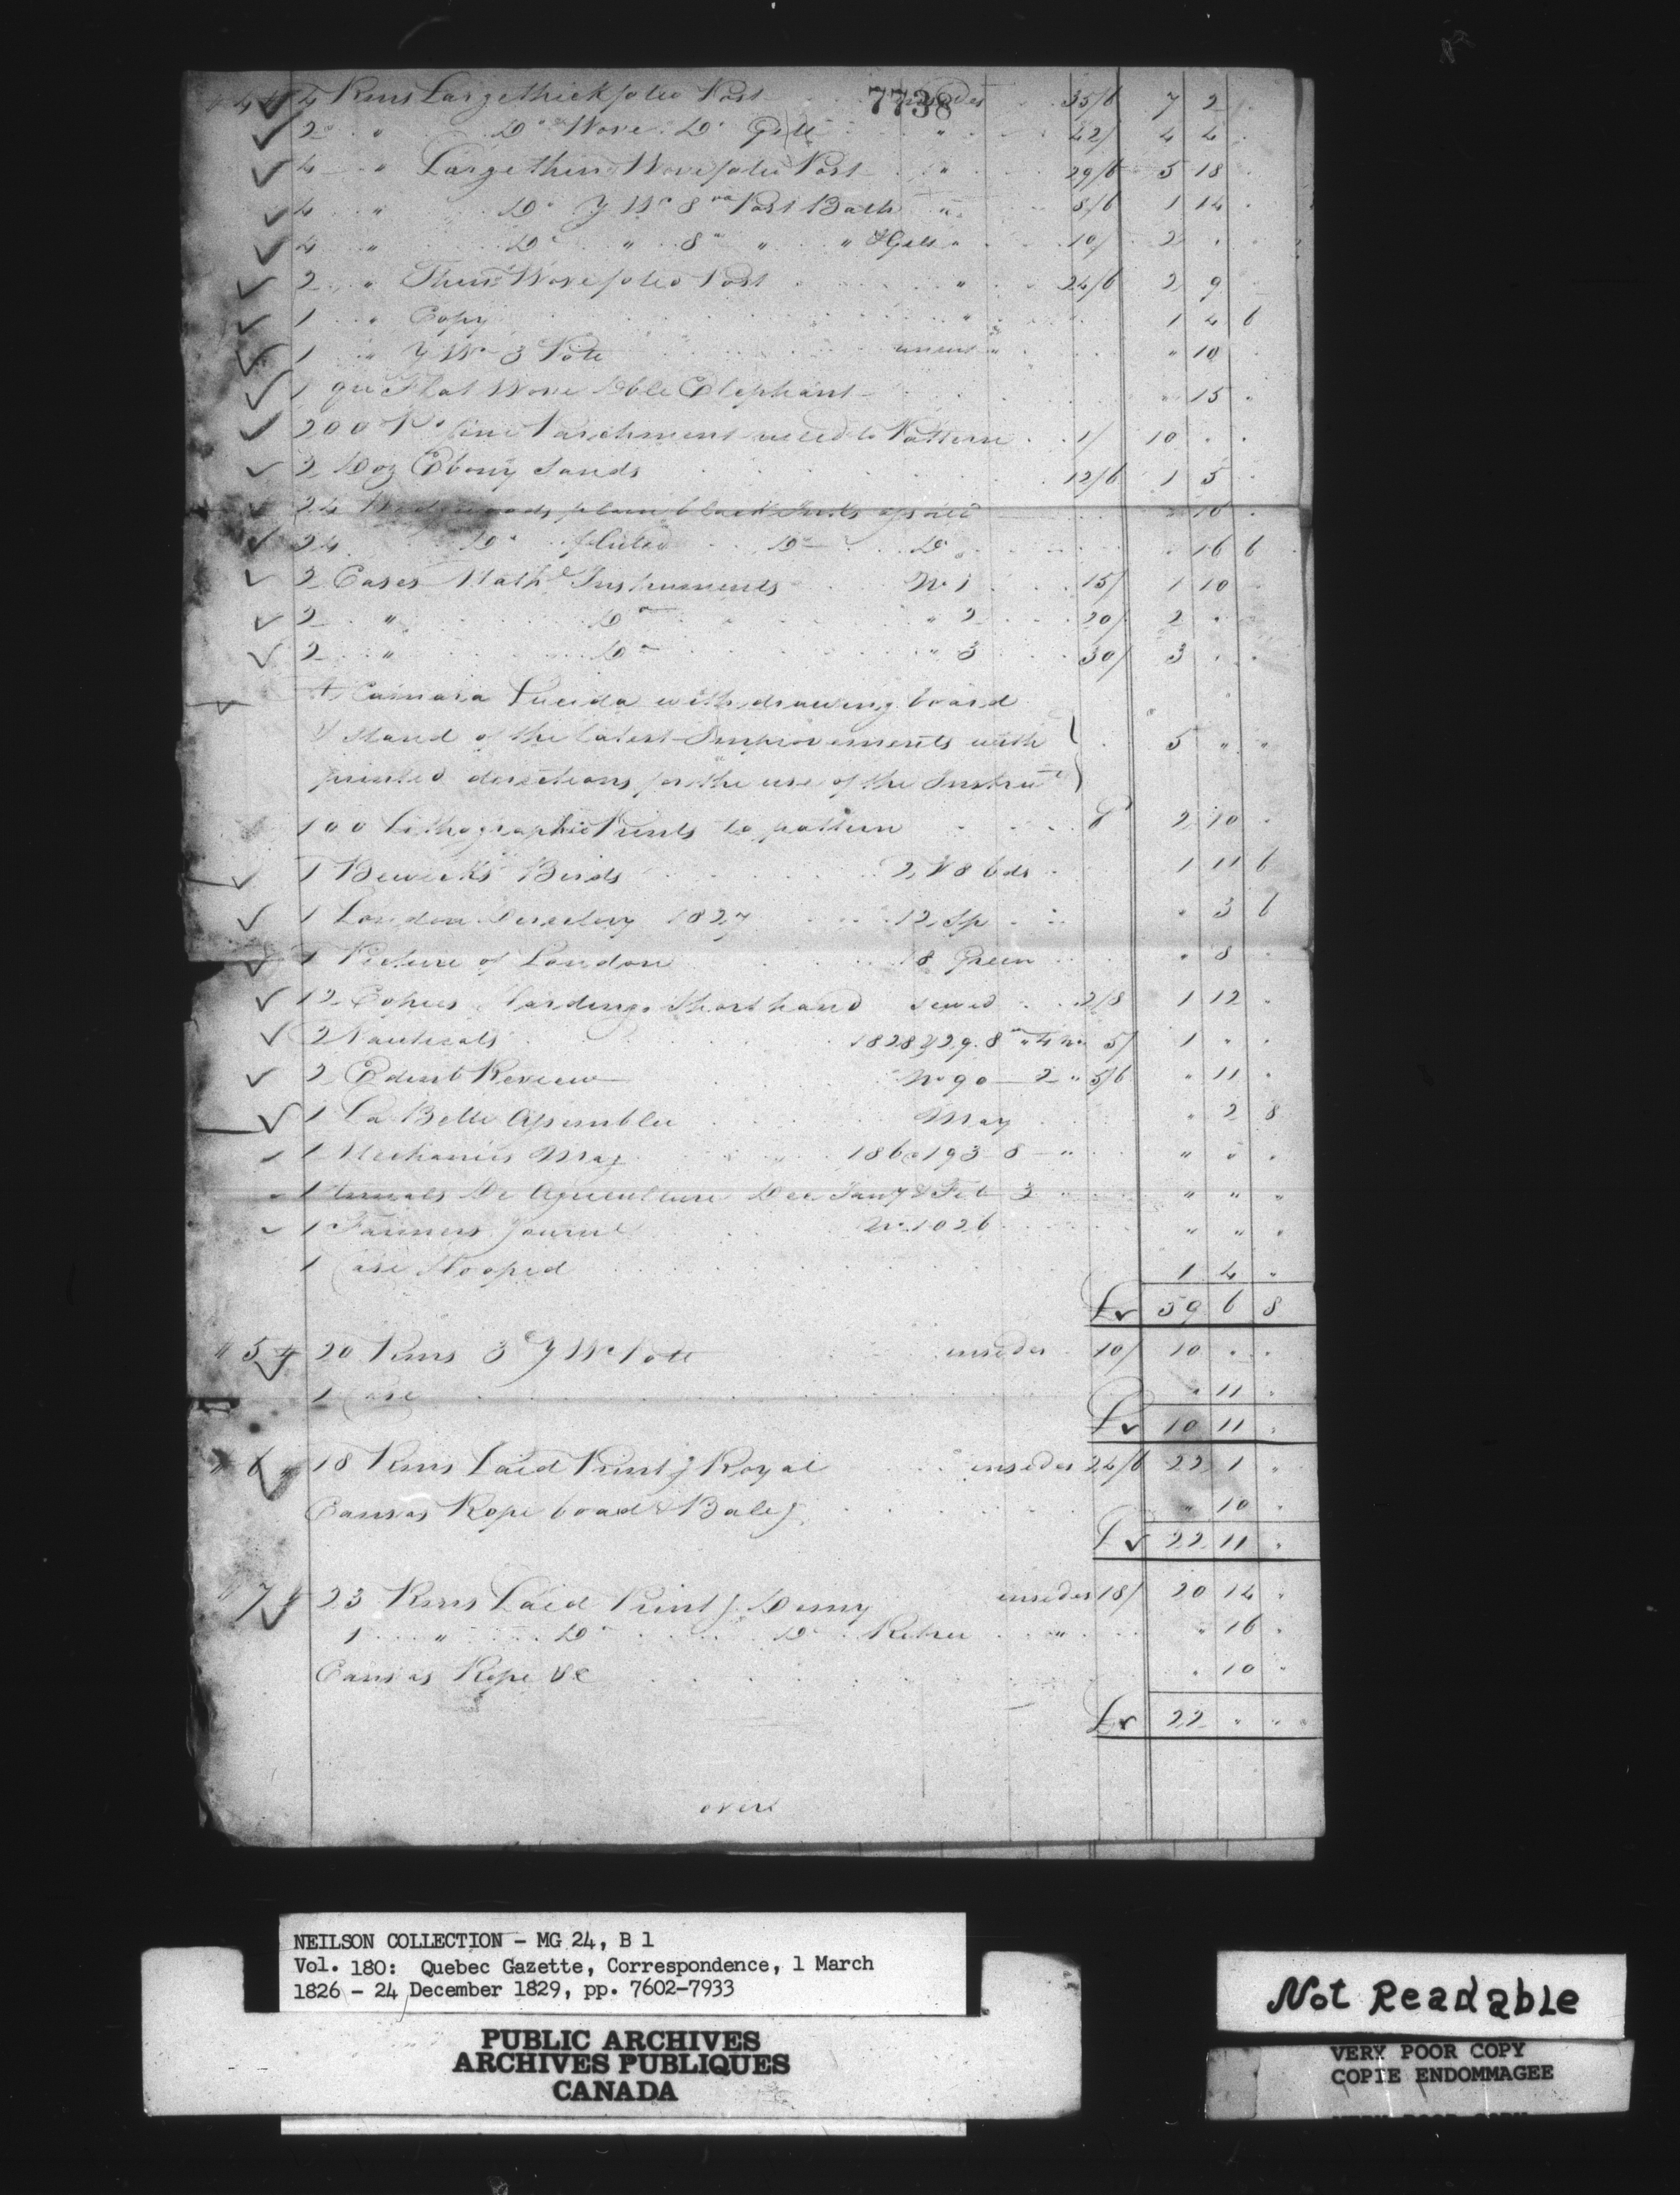 7738
" 4 " 4 Rms Large thick folio Post insides 35/6 7 2 "
2 " Do Wove Do Gilt " 42/ 4 4 "
4 " Large thin Wove folio Post " 29/6 5 18 "
4 " Do Y Wo 8vo Post Bath " 8/6 1 14 "
4 " Do " 8vo " " & Gilt " 10/ 2 " "
2 " Thin Wove folio Post " 24/6 2 9 "
1 " Copy " 1 4 6
1 " Y Wo 3 Pott uncut " " 10 "
1 qre Flat Wove Dble Elephant " 15 "
200 Ps fine Parchment to Pattern 1/ 10 " "
2 Doz Ebony Sands 12/6 1 5 "
24 Wedgwoods plain black Inks assorted " 16 "
24 Do fluted Do Do " 16 6
2 Cases Mathl Instruments No 1 15/ 1 10 "
2 " Do " 2 20/ 2 " "
2 " Do " 3 30/ 3 " "
A Camara Lucida with drawing board
& Stand of the latest Improvements with 5 " "
printed directions for the use of the Instrut
100 Lithographic Prints to pattern 6d 2 10 "
1 Bewick's Birds 2 V 8 bds 1 11 6
1 London Directory 1827 12 Sp " 3 6
1 Picture of London 18 Green " 8 "
12 Copies Hardings Shorthand sewed 2/8 1 12 "
2 Nauticals 1828 & 29. 8vo " 4 No 5/ 1 " "
2 Edinb Review No 90 2 " 5/6 " 11 "
1 La Belle Assemblee May " 2 8
1 Mechanics Mag 186 @ 193 8 " " " "
1 Annals De Agriculture Dec Jany & Feb 3 " " " "
1 Farmers Journl No 1026 " " "
1 Case Hooped 1 4 "
£ 59 6 8
" 5 " 20 Rms 3d Y Wo Pott insides 10/ 10 " "
1 Case " 11 "
£ 10 11 "
" 6 " 18 Rms Laid Printg Royal insides 24/6 22 1 "
Canvas Rope board & Baleg " 10 "
£ 22 11 "
" 7 " 23 Rms Laid Printg Demy insides 18/ 20 14 "
1 " Do Do Retree " " 16 "
Canvas Rope &c " 10 "
£ 22 " "
over
NEILSON COLLECTION - MG 24, B 1
Vol. 180: Quebec Gazette, Correspondence, 1 March
1826 - 24 December 1829, pp. 7602-7933
PUBLIC ARCHIVES
ARCHIVES PUBLIQUES
CANADA
Not Readable
VERY POOR COPY
COPIE ENDOMMAGEE